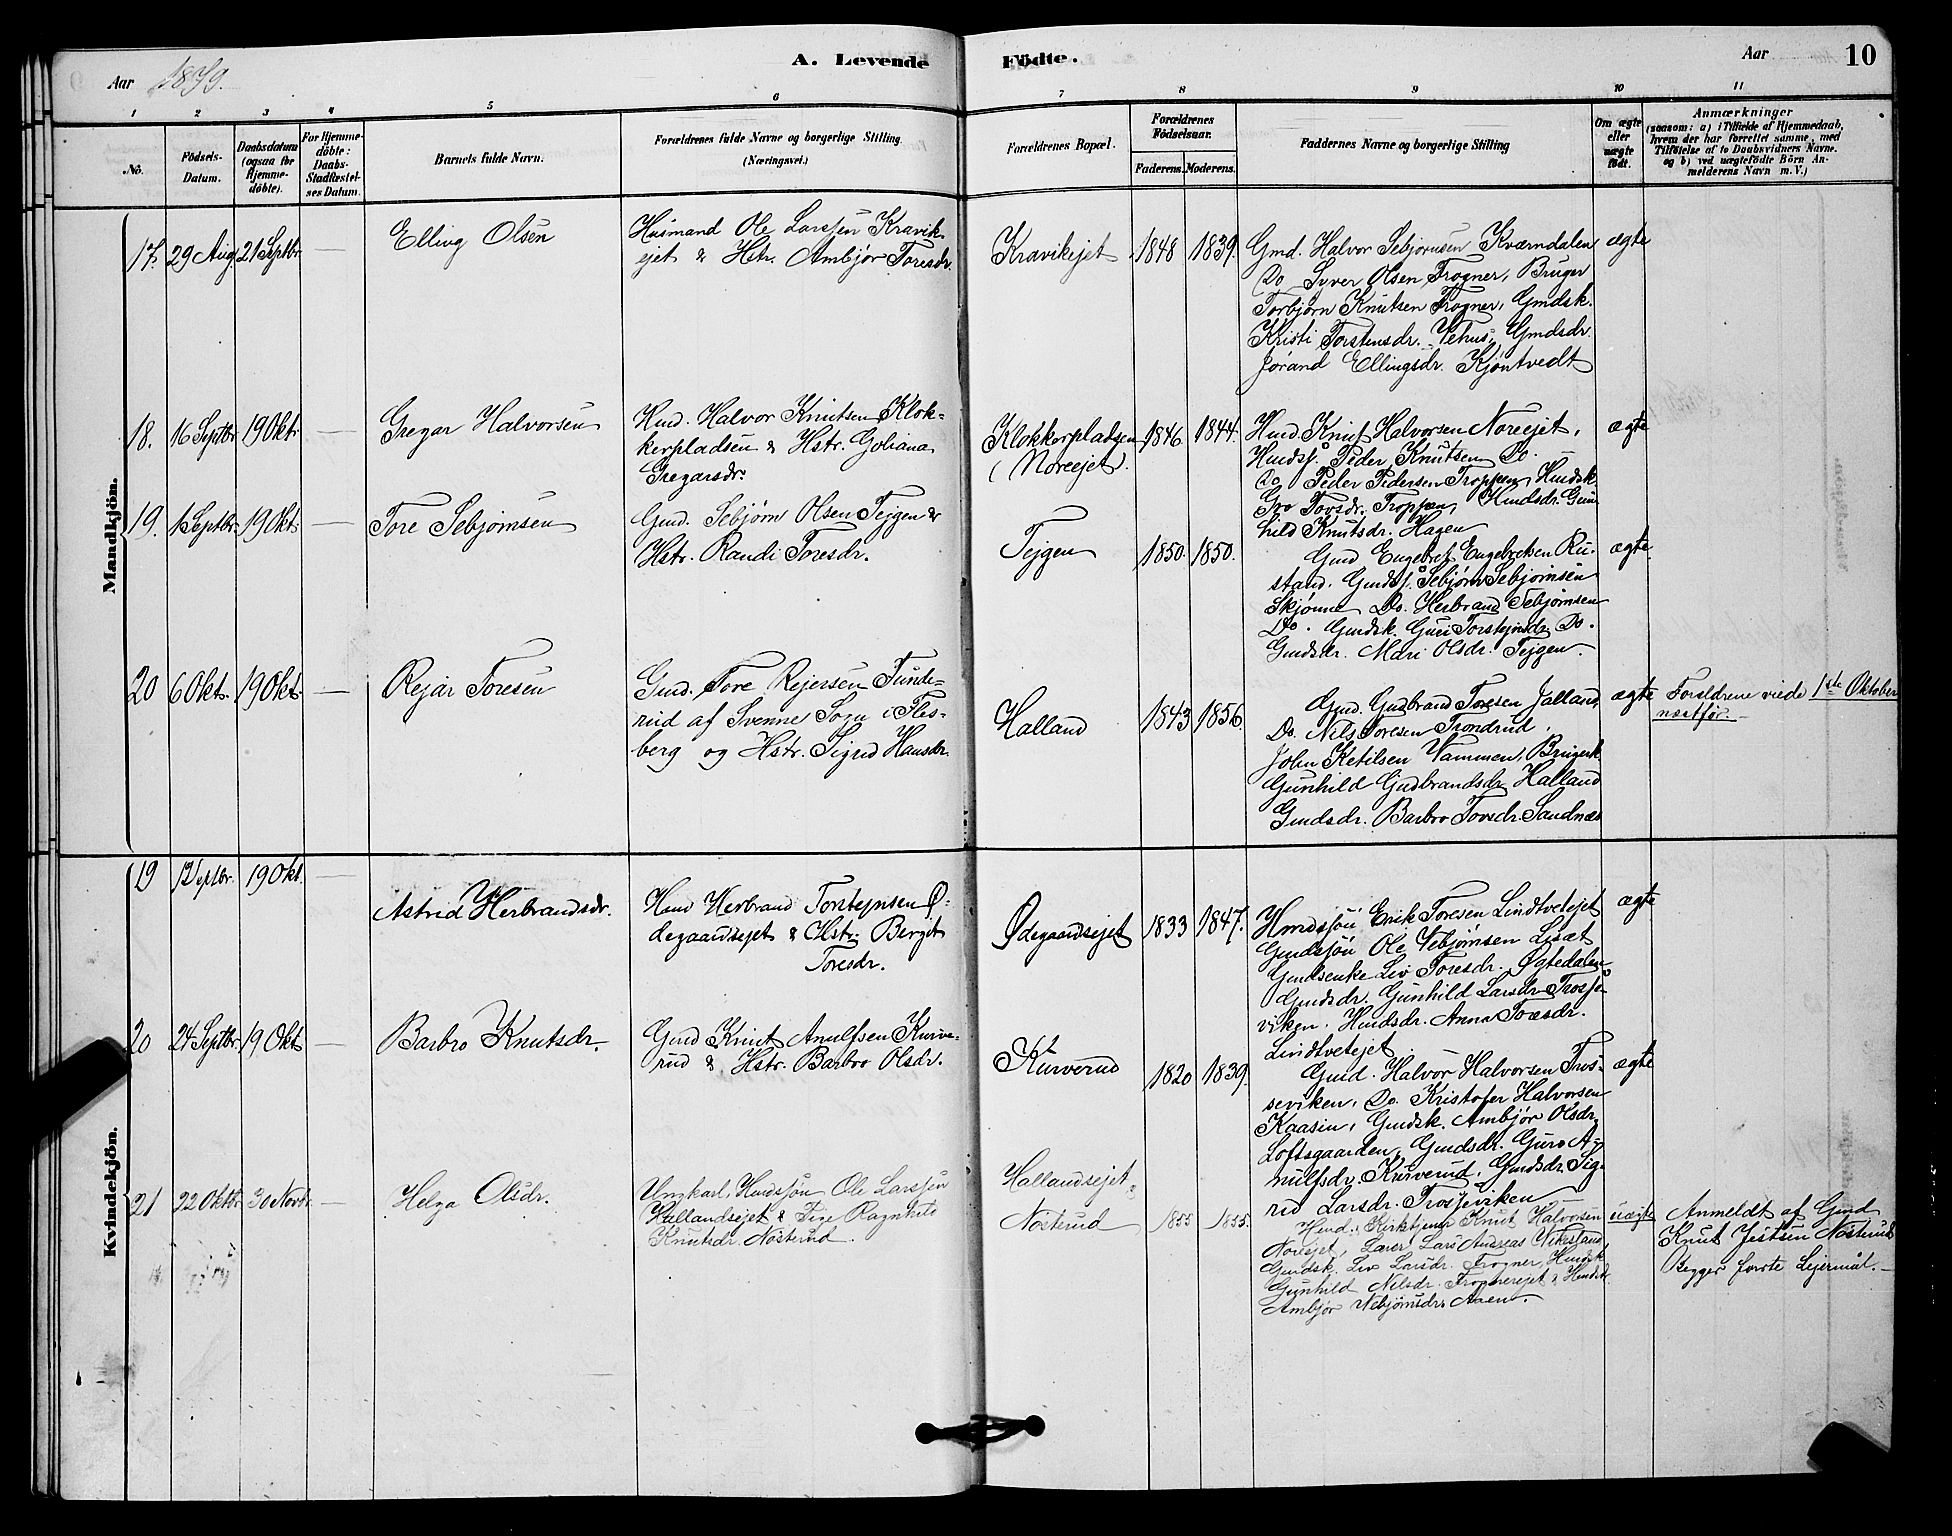 A. Levende
Fødte.
Aar 1879.
Aar
10
1 2 3 4 5 6 7 8 9 10 11
No.
Fødsels-
Datum.
Daabsdatum
(ogsaa for
Hjemme-
døbte).
For Hjemme-
døbte:
Daabs-
Stadfæstel-
ses Datum.
Barnets fulde Navn.
Forældrenes fulde Navne og borgerlige Stilling
(Næringsvei.)
Forældrenes Bopæl.
Forældrenes
Fødselsaar.
Faderens. Moderens.
Faddernes Navne og borgerlige Stilling
Om ægte
eller
uægte
født.
Anmærkninger
(saasom: a) i Tilfælde af Hjemmedaab,
hvem der har forrettet samme, med
Tilføielse af to Daabsvidners Navne.
og b) ved uægtefødte Børn An-
melderens Navn m. V.)
Mandkjön.
17. 29 Aug. 21 Septbr. —
Elling Olsen
Husmand Ole Larssen Kravik-
ejet & Hstr. Ambjør Toresdr.
Kravikejet
1848 1839.
Gmd. Halvor Sebjørnsen Kværndalen
Do Syver Olsen Frogner, Bruger
Torbjørn Knutsen Frogner, Gmdsk.
Kristi Torstensdr. Vehus, Gmdsdr.
Jørand Ellingsdr. Kjøntvedt
ægte
18. 16 Septbr. 19 Okt. —
Gregar Halvorsen
Hmd. Halvor Knutsen Klok-
kerpladsen & Hstr. Goliana
Gregarsdr.
Klokkerpladsen
(Noreejet).
1846. 1844.
Hmd. Knut Halvorsen Noreejet,
Hmdss. Peder Knutsen Do. —
Do Peder Pedersen Troppen, Hmdsk.
Gro Tovsdr. Troppen, Hmdsdr. Gun-
hild Knutsdr. Hagen
ægte
19. 1 Septbr. 19 Okt. —
Tore Sebjørnsen
Gmd. Sebjørn Olsen Tejgen &
Hstr. Randi Toresdr.
Tejgen
1850. 1850.
Gmd Engebret Engebretsen Ru-
stand. Gmdss. Sebjørn Sebjørnsen
Skjønne Do. Herbrand Sebjørnsen
Do. Gmdsk. Guri Torstejnsdr. Do.
Gmdsdr. Mari Olsdr. Tejgen.
ægte.
20 6 Okt. 19 Okt. —
Rejar Toresen
Gmd. Tore Rejersen Funde-
rud af Svenne Sogn i Fles-
berg og Hstr. Sigrid Hansdr.
Halland
1843 1856.
Gmd. Gudbrand Toresen Jalland,
Do. Nils Toresen Trondrud,
John Ketilsen Vammen, Brugersk.
Gunhild Gudbrandsdr. Halland
Gmdsdr. Barbro Tovsdr. Sandnæs
ægte
Forældrene viede 1ste Oktober
næstfør. —
Kvindekjön.
19 12 Septbr. 19 Okt. —
Astrid Herbrandsdr.
Hmd Herbrand Torstejnsen Ø-
degaardsejet & Hstr. Bergit
Toresdr.
Ødegaardsejet
1833 1847.
Hmdssøn Erik Toresen Lindtvetejet
Gmdssøn Ole Vebjørnsen Lisæt
Gmdsenke Liv Toresdr. Øgtedalen
Gmdsdr. Gunhild Larsdr. Trosse-
viken. Hmdsdr. Anna Toresdr.
Lindtvetejet.
ægte
20 24 Septbr. 19 Okt —
Barbro Knutsdr.
Gmd Knut Arnulfsen Kurve-
rud & Hstr. Barbro Olsdr.
Kurverud
1820 1839.
Gmd. Halvor Halvorsen Tros-
seviken. Do. Kristofer Halvorsen
Kaasin, Gmdsk. Ambjør Olsdr.
Loftsgaarden, Gmdsdr. Guro Ar-
nulfsdr. Kurverud. Gmdsdr. Sig-
rid Larsdr. Trosseviken
ægte
21 22 Oktbr. 30 Novbr. —
Helga Olsdr.
Ungkarl, Hmdssøn Ole Larssen
Hallandsejet & Pige Ragnhild
Knutsdr. Nøsterud.
Hallandsejet &
Nøsterud
1855 1855.
Hmd. Kirketjener Knut Halvorsen
Noreejet, Lærer Lars Andreas Vikesland
Gmdsk. Liv Larsdr. Frogner, Hmdsk.
Gunhild Nilsdr. Frognerejet & Hmdsdr.
Ambjør Vebjørnsdr. Aaen.
uægte
Anmeldt af Gmd
Knut Jestsen Nøsterud
Begges første Lejermål. —